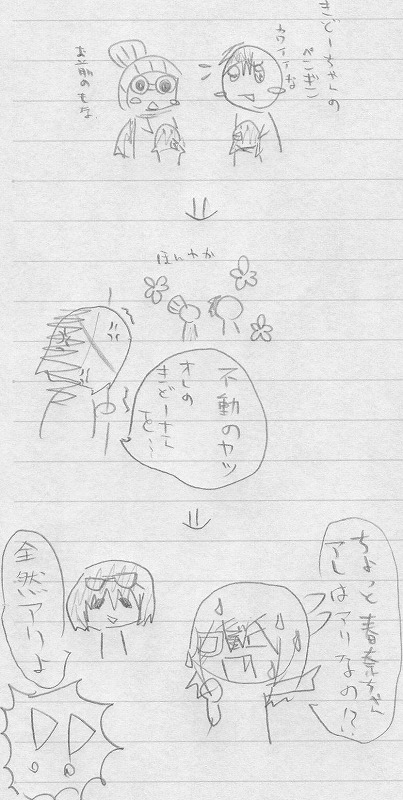 きどーちゃんの
ペンギン
カワイイな
お前のもな
ほんわか
不動のヤツ
オレの
きどーちゃん
と…
ちょっと春奈ちゃん
アレはアリなの!?
全然アリよ
!!